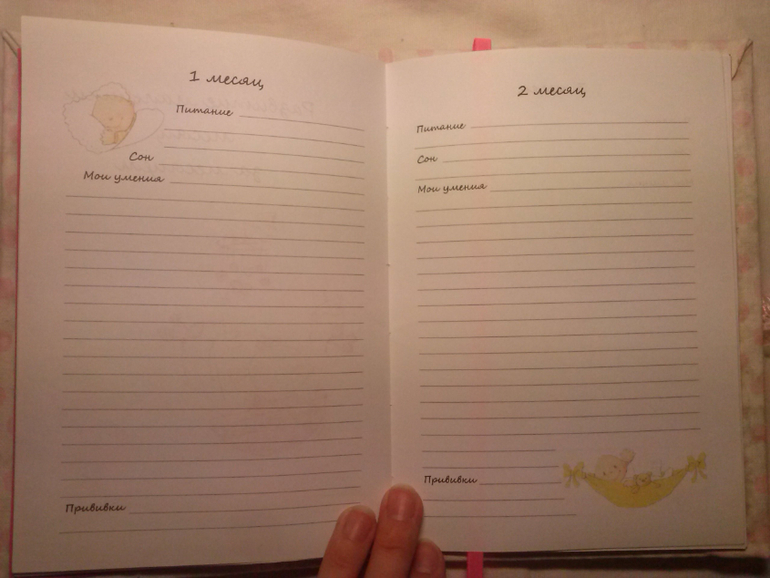 1 месяц
Питание
Сон
Мои умения
Прививки
2 месяц
Питание
Сон
Мои умения
Прививки